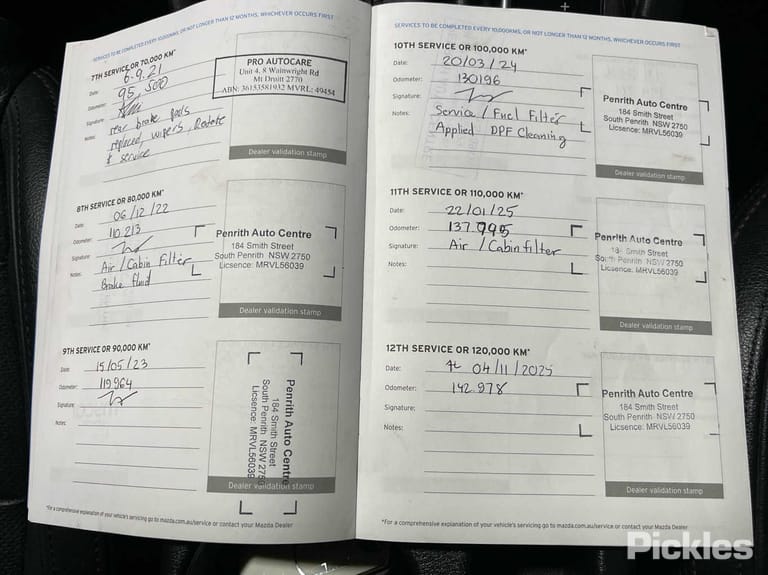 SERVICES TO BE COMPLETED EVERY 10,000KMS, OR NOT LONGER THAN 12 MONTHS, WHICHEVER OCCURS FIRST
7TH SERVICE OR 70,000 KM*
Date: 6.9.21
Odometer: 95,500
Signature:
Notes: rear brake pads
replaced, wipers, Rotate
& service
PRO AUTOCARE
Unit 4, 8 Wainwright Rd
Mt Druit 2770
ABN: 36153581932 MVRL: 49454
Dealer validation stamp
8TH SERVICE OR 80,000 KM*
Date: 06/12/22
Odometer: 110 213
Signature:
Notes: Air/Cabin Filter
Brake fluid
Penrith Auto Centre
184 Smith Street
South Penrith NSW 2750
Licsence: MRVL56039
Dealer validation stamp
9TH SERVICE OR 90,000 KM*
Date: 15/05/23
Odometer: 119964
Signature:
Notes:
Penrith Auto Centre
184 Smith Street
South Penrith NSW 2750
Licsence: MRVL56039
Dealer validation stamp
*For a comprehensive explanation of your vehicle's servicing go to mazda.com.au/service or contact your Mazda Dealer
SERVICES TO BE COMPLETED EVERY 10,000KMS, OR NOT LONGER THAN 12 MONTHS, WHICHEVER OCCURS FIRST
10TH SERVICE OR 100,000 KM*
Date: 20/03/24
Odometer: 130196
Signature:
Notes: Service/Fuel Filter
Applied DPF Cleaning
Penrith Auto Centre
184 Smith Street
South Penrith NSW 2750
Licsence: MRVL56039
Dealer validation stamp
11TH SERVICE OR 110,000 KM*
Date: 22/01/25
Odometer: 137.995
Signature: Air/Cabin filter
Notes:
Penrith Auto Centre
184 Smith Street
South Penrith NSW 2750
Licsence: MRVL56039
Dealer validation stamp
12TH SERVICE OR 120,000 KM*
Date: 04/11/2025
Odometer: 142.978
Signature:
Notes:
Penrith Auto Centre
184 Smith Street
South Penrith NSW 2750
Licsence: MRVL56039
Dealer validation stamp
*For a comprehensive explanation of your vehicle's servicing go to mazda.com.au/service or contact your Mazda Dealer
Pickles